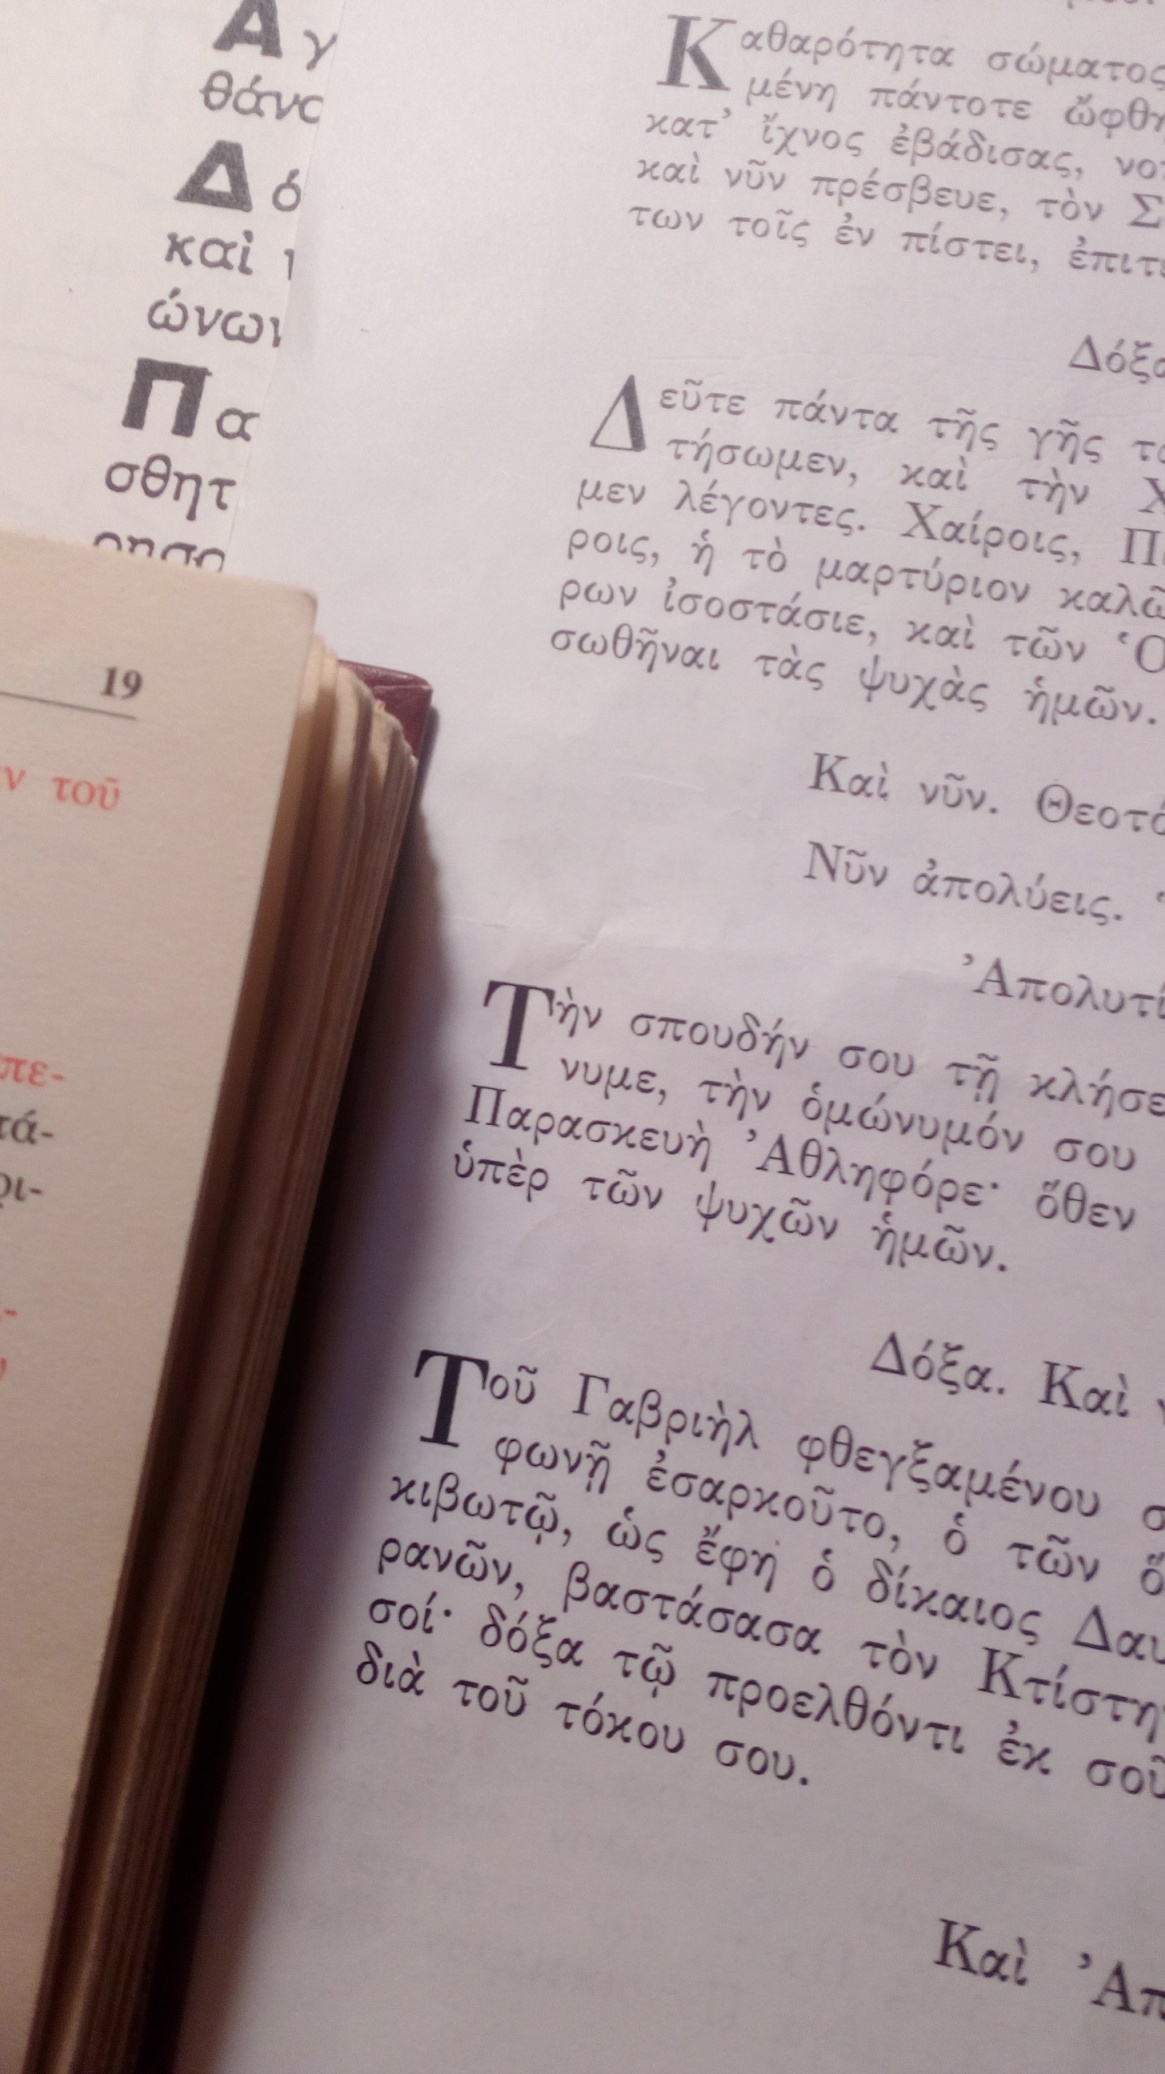 Α γ
θάνα
Δ ό
καὶ
ώνων
Π α
σθητ
19
ν τοῦ
πε-
τά-
ρι-
Καθαρότητα σώματος
μένη πάντοτε ὤφθη
κατ’ ἴχνος ἐβάδισας, νο
καὶ νῦν πρέσβευε, τὸν Σ
των τοῖς ἐν πίστει, ἐπιτε
Δόξα
Δεῦτε πάντα τῆς γῆς τὰ
τήσωμεν, καὶ τὴν Χ
μεν λέγοντες. Χαίροις, Πα
ροις, ἡ τὸ μαρτύριον καλῶ
ρων ἰσοστάσιε, καὶ τῶν Ὁ
σωθῆναι τὰς ψυχὰς ἡμῶν.
Καὶ νῦν. Θεοτό
Νῦν ἀπολύεις.
Ἀπολυτί
Τὴν σπουδήν σου τῇ κλήσε
νυμε, τὴν ὁμώνυμόν σου
Παρασκευὴ Ἀθληφόρε· ὅθεν
ὑπὲρ τῶν ψυχῶν ἡμῶν.
Δόξα. Καὶ ν
Τοῦ Γαβριὴλ φθεγξαμένου σ
φωνῇ ἐσαρκοῦτο, ὁ τῶν ὅ
κιβωτῷ, ὡς ἔφη ὁ δίκαιος Δαυ
ρανῶν, βαστάσασα τὸν Κτίστην
σοί· δόξα τῷ προελθόντι ἐκ σοῦ
διὰ τοῦ τόκου σου.
Καὶ Ἀπ